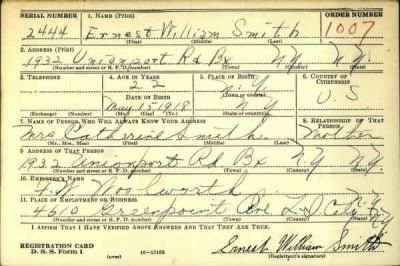 SERIAL NUMBER 1. NAME (Print) ORDER NUMBER
2444 Ernest William Smith 1007
(First) (Middle) (Last)
2. ADDRESS (Print)
1932 Unionport Rd Bx N.Y. N.Y.
(Number and street or R. F. D. number) (Town) (County) (State)
3. TELEPHONE 4. AGE IN YEARS 5. PLACE OF BIRTH 6. COUNTRY OF CITIZENSHIP
22 N.Y.
DATE OF BIRTH (Town or county) U.S
May 15 1918 N.Y.
(Exchange) (Number) (Mo.) (Day) (Yr.) (State or country)
7. NAME OF PERSON WHO WILL ALWAYS KNOW YOUR ADDRESS 8. RELATIONSHIP OF THAT PERSON
Mrs Catherine Smith Mother
(Mr., Mrs., Miss) (First) (Middle) (Last)
9. ADDRESS OF THAT PERSON
1932 Unionport Rd. Bx N.Y NY
(Number and street or R. F. D. number) (Town) (County) (State)
10. EMPLOYER'S NAME
F.W. Woolworth
11. PLACE OF EMPLOYMENT OR BUSINESS
4610 Greenpoint Ave L.I. City N.Y.
(Number and street or R. F. D. number) (Town) (County) (State)
I AFFIRM THAT I HAVE VERIFIED ABOVE ANSWERS AND THAT THEY ARE TRUE.
REGISTRATION CARD
D. S. S. Form 1 (over) 16—17105 Ernest William Smith
(Registrant's signature)